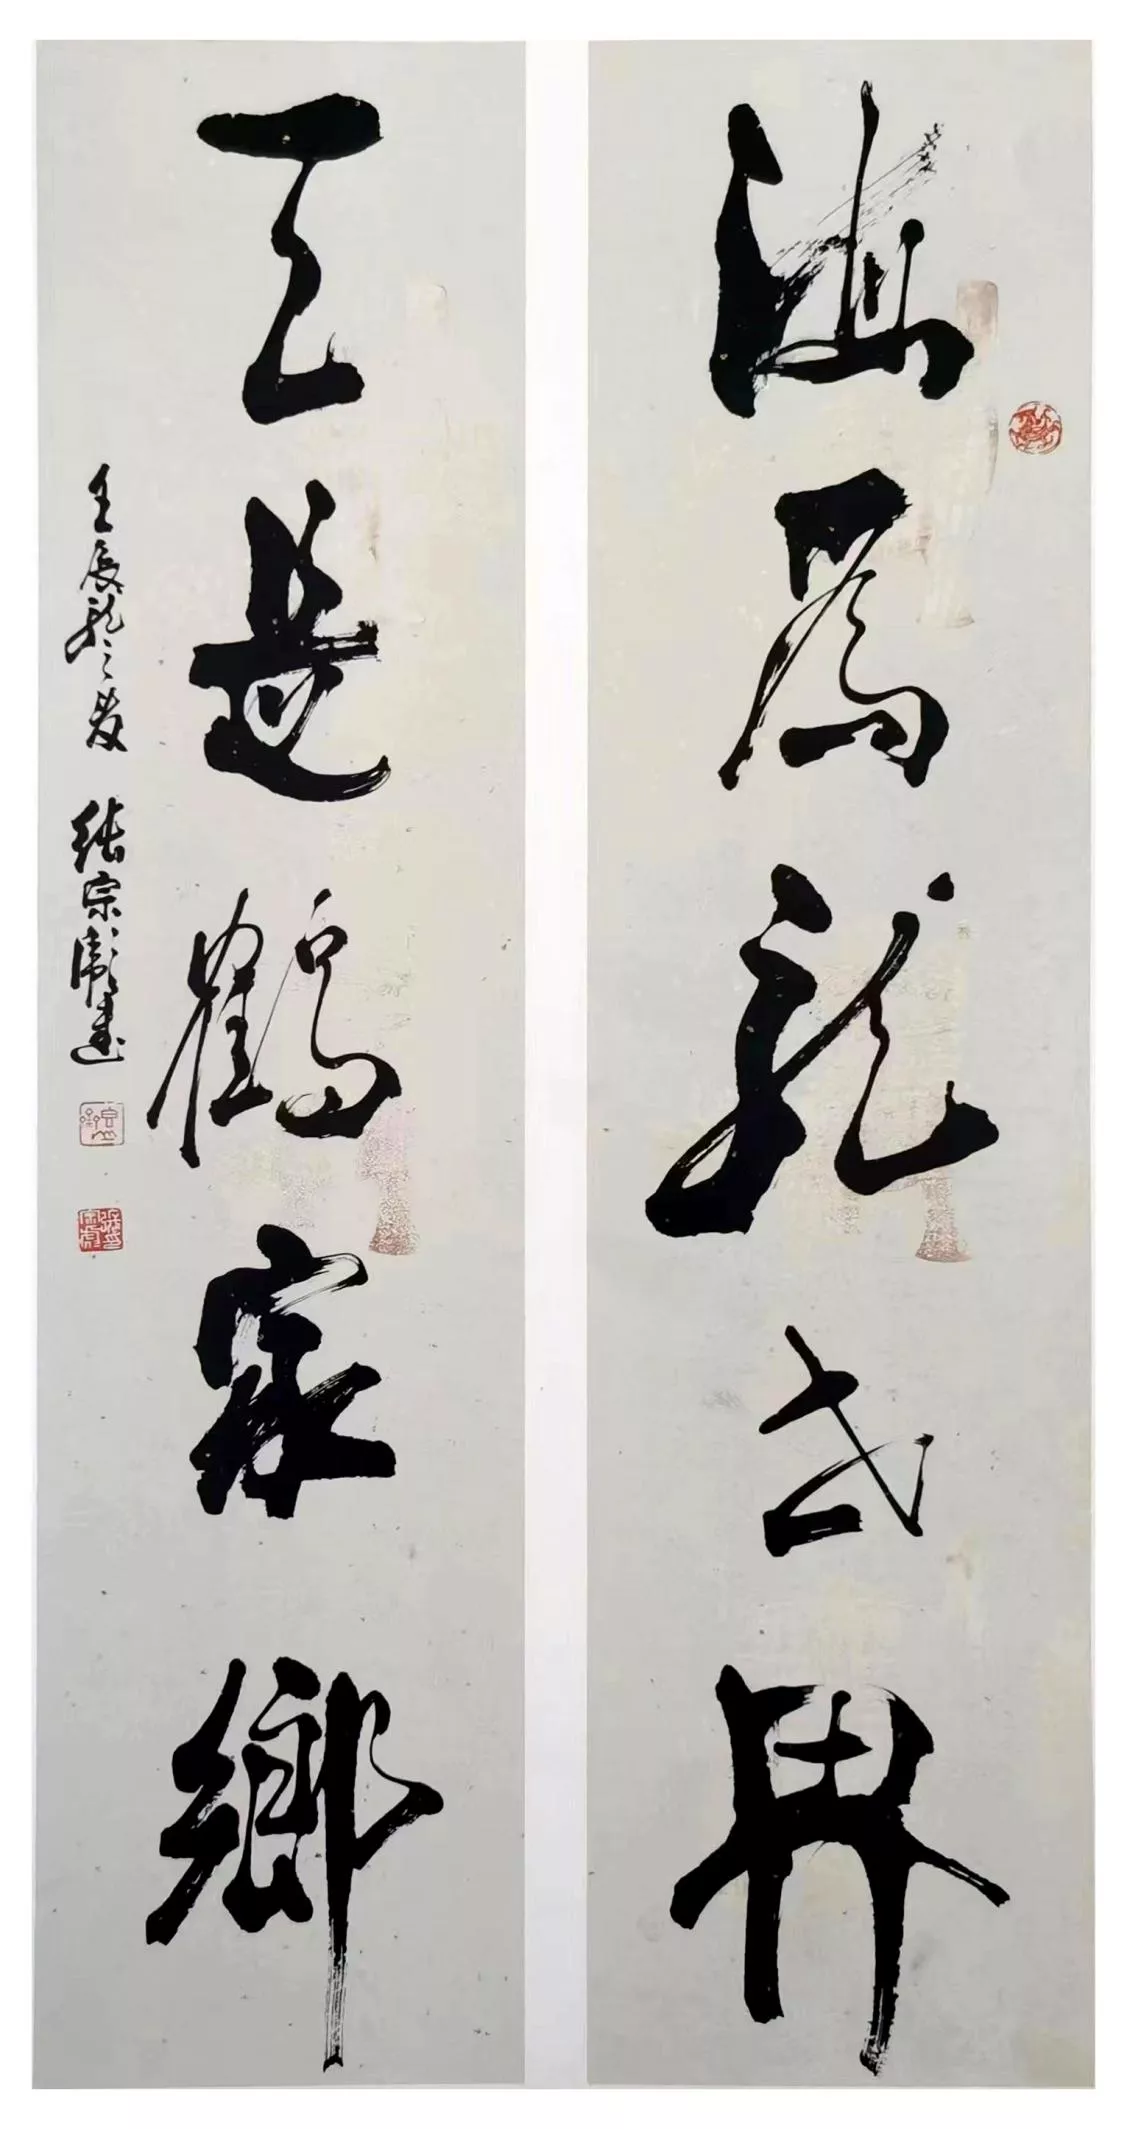 海為龍世界
天是鶴家鄉
壬辰龍之發 張宗彪書